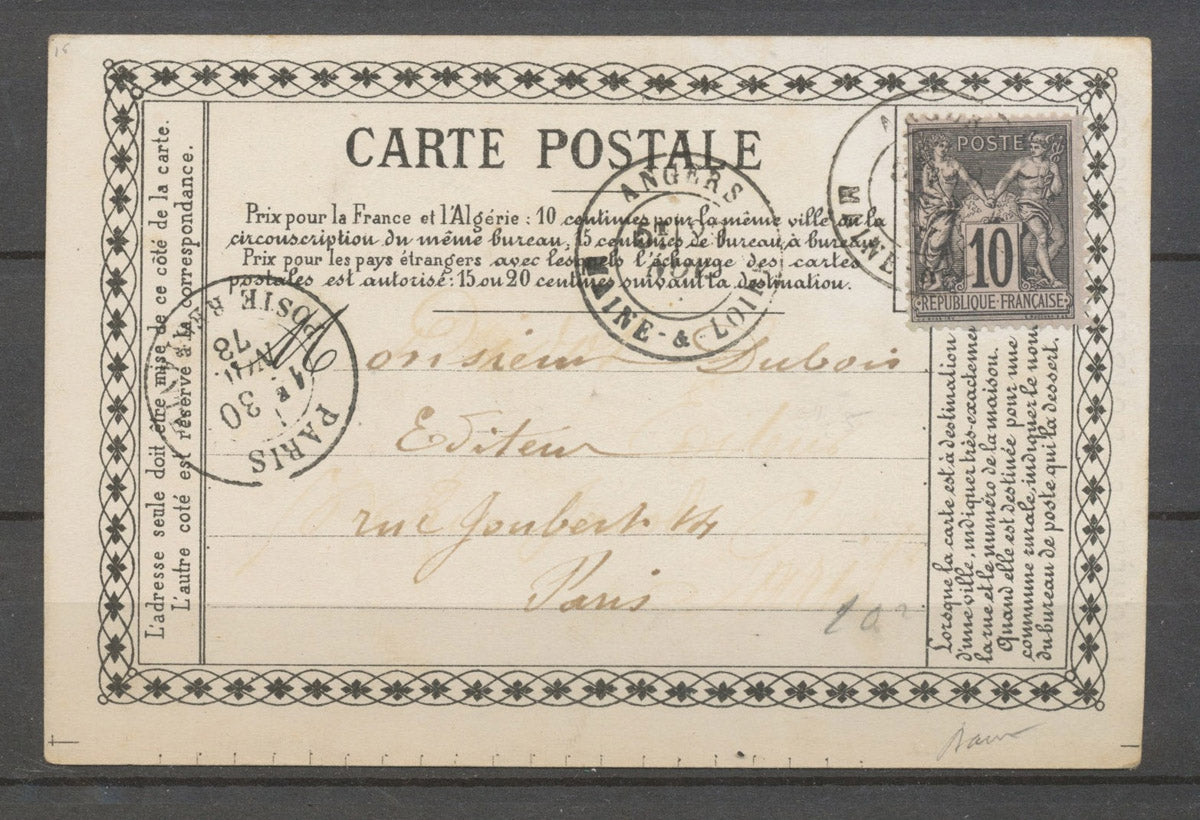 CARTE POSTALE
Prix pour la France et l'Algérie : 10 centimes pour la même ville ou la
circonscription du même bureau, 15 centimes de bureau à bureau.
Prix pour les pays étrangers avec lesquels l'échange des cartes
postales est autorisé : 15 ou 20 centimes suivant la destination.
L'adresse seule doit être mise de ce côté de la carte.
L'autre coté est réservé à la correspondance.
POSTE
10
RÉPUBLIQUE-FRANÇAISE
ANGERS
NOV.
MAINE-&-LOIRE
MAINE
PARIS
1E
30
NOV.
78
Monsieur Dubois
Editeur
rue Joubert 14
Paris
Lorsque la carte est à destination
d'une ville, indiquer très-exactement
la rue et le numéro de la maison.
Quand elle est destinée pour une
commune rurale, indiquer le nom
du bureau de poste qui la dessert.
15